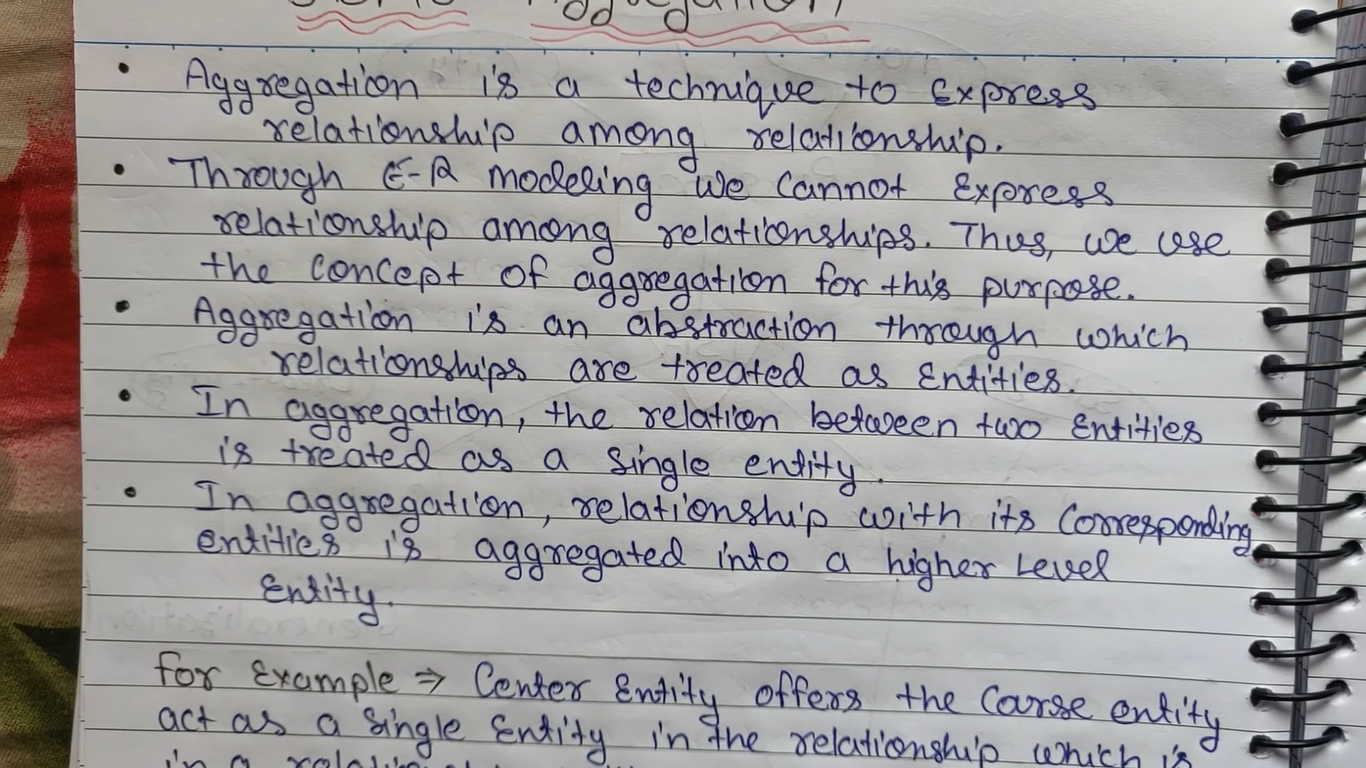 Aggregation
• Aggregation is a technique to Express
relationship among relationship.
• Through E-R modeling we cannot Express
relationship among relationships. Thus, we use
the concept of aggregation for this purpose.
• Aggregation is an abstraction through which
relationships are treated as Entities.
• In aggregation, the relation between two Entities
is treated as a single entity.
• In aggregation, relationship with its Corresponding
entities is aggregated into a higher Level
Entity.
for Example ⇒ Center Entity offers the Carse entity
act as a Single Entity in the relationship which is
in a